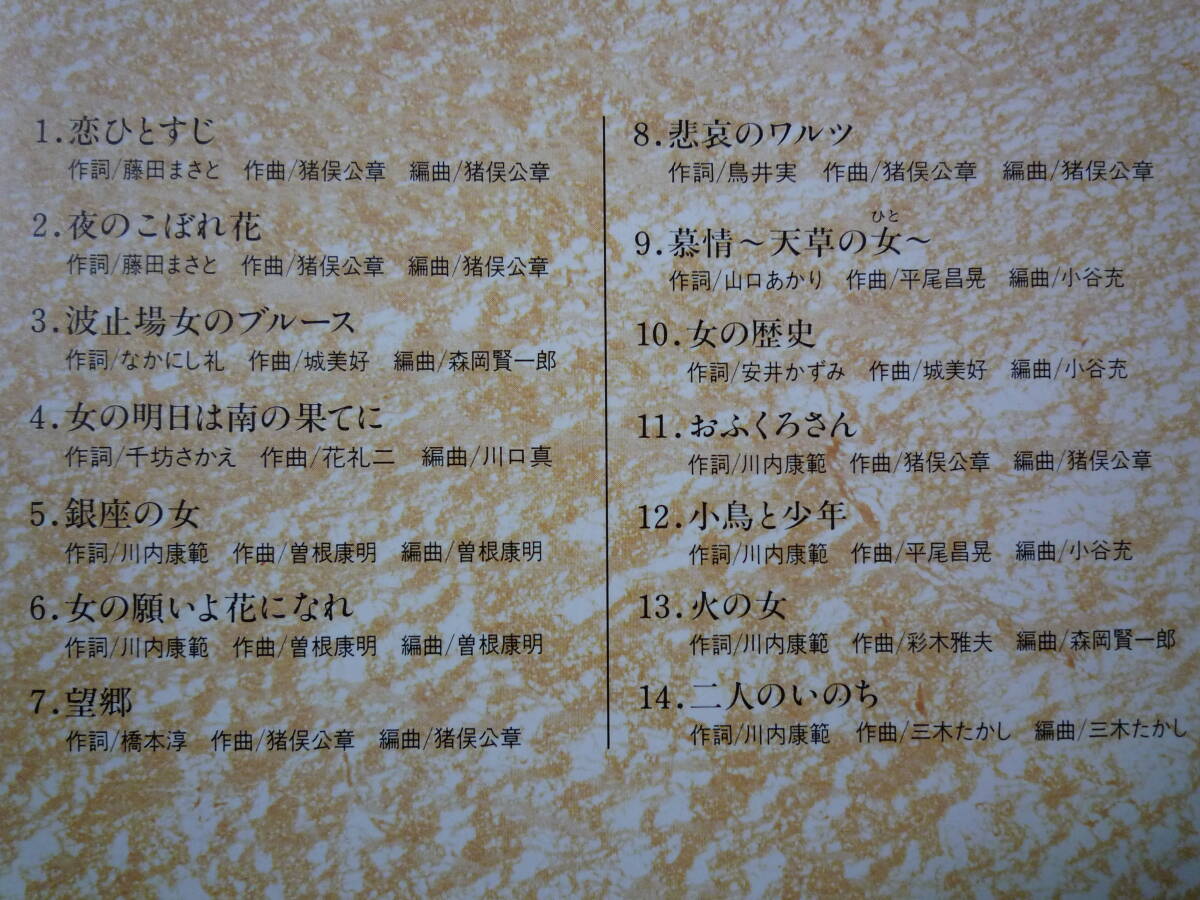 1.恋ひとすじ
作詞/藤田まさと 作曲/猪俣公章 編曲/猪俣公章
2.夜のこぼれ花
作詞/藤田まさと 作曲/猪俣公章 編曲/猪俣公章
3.波止場女のブルース
作詞/なかにし礼 作曲/城美好 編曲/森岡賢一郎
4.女の明日は南の果てに
作詞/千坊さかえ 作曲/花礼二 編曲/川口真
5.銀座の女
作詞/川内康範 作曲/曽根康明 編曲/曽根康明
6.女の願いよ花になれ
作詞/川内康範 作曲/曽根康明 編曲/曽根康明
7.望郷
作詞/橋本淳 作曲/猪俣公章 編曲/猪俣公章
8.悲哀のワルツ
作詞/鳥井実 作曲/猪俣公章 編曲/猪俣公章
ひと
9.慕情～天草の女～
作詞/山口あかり 作曲/平尾昌晃 編曲/小谷充
10.女の歴史
作詞/安井かずみ 作曲/城美好 編曲/小谷充
11.おふくろさん
作詞/川内康範 作曲/猪俣公章 編曲/猪俣公章
12.小鳥と少年
作詞/川内康範 作曲/平尾昌晃 編曲/小谷充
13.火の女
作詞/川内康範 作曲/彩木雅夫 編曲/森岡賢一郎
14.二人のいのち
作詞/川内康範 作曲/三木たかし 編曲/三木たかし